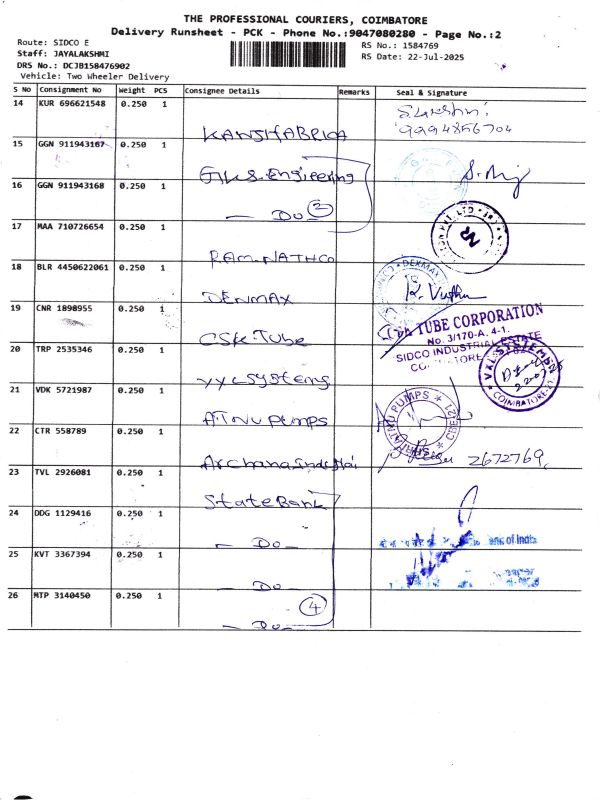 THE PROFESSIONAL COURIERS, COIMBATORE
Delivery Runsheet - PCK - Phone No.:9047080280 - Page No.:2
Route: SIDCO E
Staff: JAYALAKSHMI
DRS No.: DCJB158476902
Vehicle: Two Wheeler Delivery
RS No.: 1584769
RS Date: 22-Jul-2025
S No Consignment No Weight PCS Consignee Details Remarks Seal & Signature
14 KUR 696621548 0.250 1
KANSHABRICA
9994856704
15 GGN 911943167 0.250 1
G.K.S. Engineering
16 GGN 911943168 0.250 1
- Do - 2
17 MAA 710726654 0.250 1
RAM.NATHCO
18 BLR 4450622061 0.250 1
DENMAX
DENMAX
K. Vuthu
19 CNR 1898955 0.250 1
CSK.Tube
TUBE CORPORATION
No. 3/170-A, 4-1,
SIDCO INDUSTRIAL ESTATE
20 TRP 2535346 0.250 1
VXL systems
VXL SYSTEMS
COIMBATORE-21
21 VDK 5721987 0.250 1
AITNU PUMPS
PUMPS
CBE
22 CTR 558789 0.250 1
Archana
2672769
23 TVL 2926081 0.250 1
State Bank
24 DDG 1129416 0.250 1
- Do -
of India
25 KVT 3367394 0.250 1
- Do -
26 MTP 3140450 0.250 1
4
- Do -